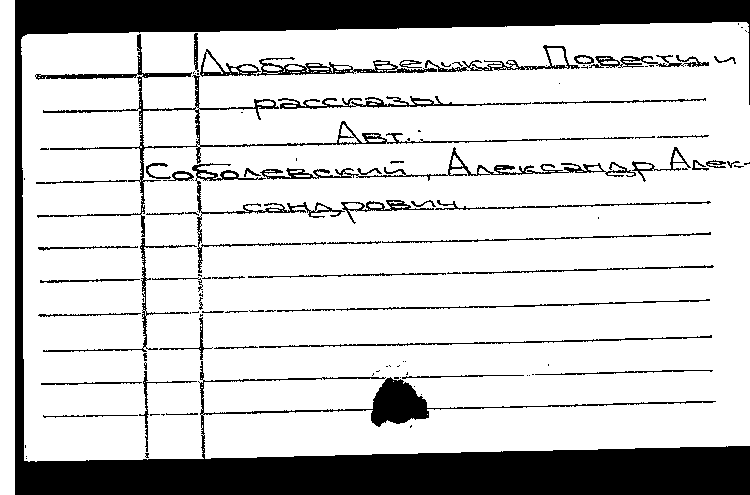 Любовь великая Повести и
рассказы.
Авт.:
Соболевский, Александр Алек-
сандрович.